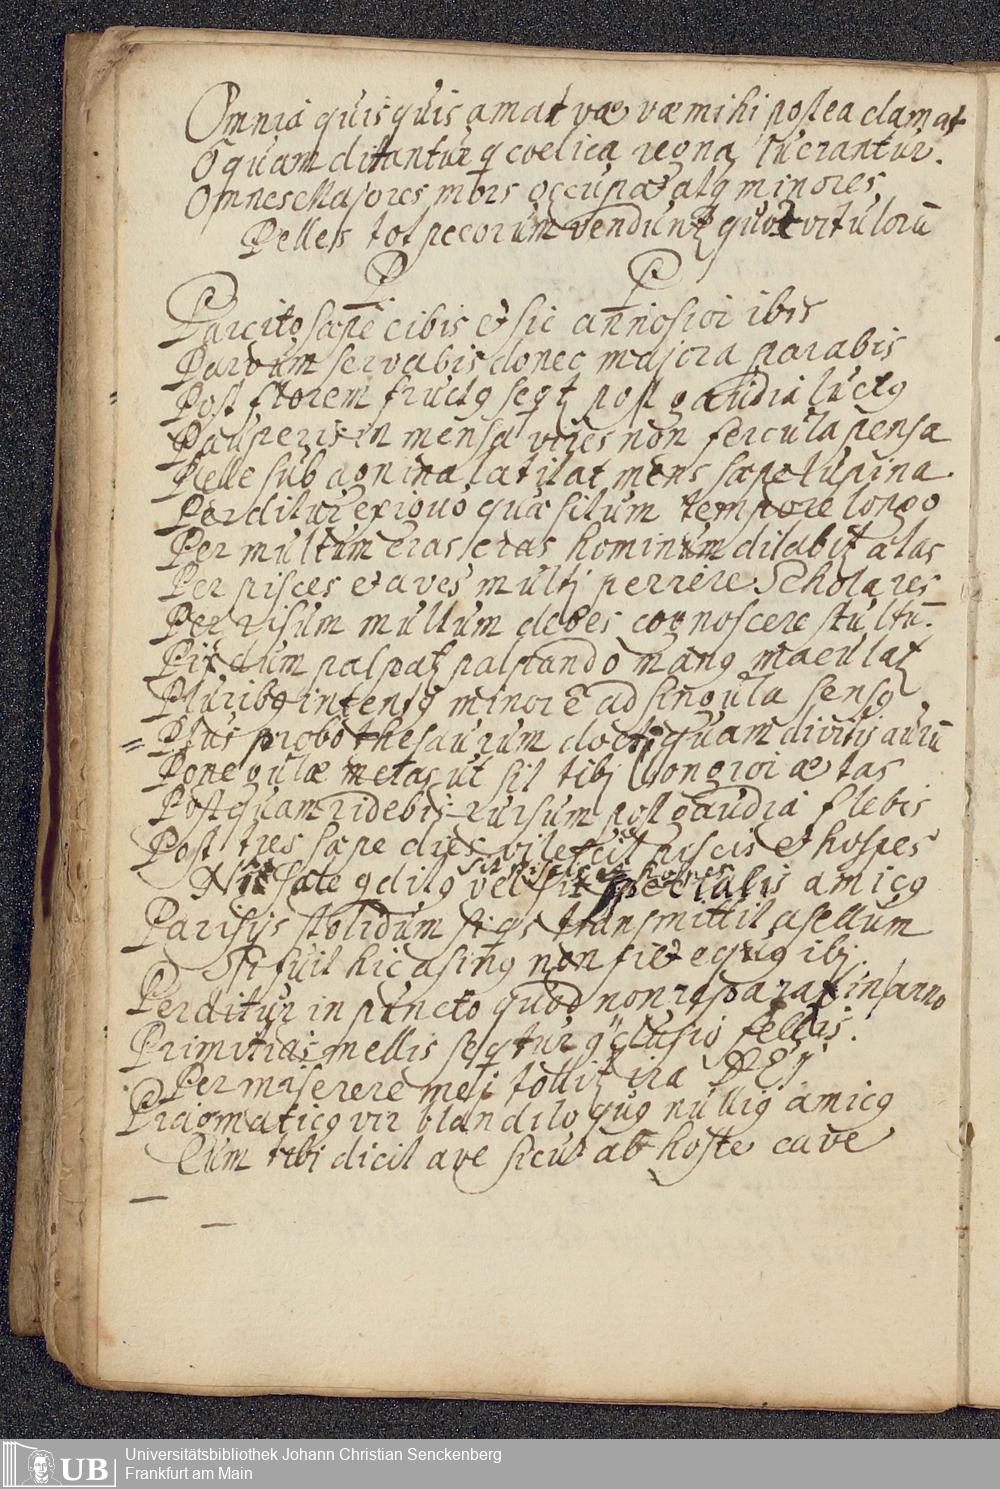 Omnia quisquis amat væ væ mihi postea clamat
O quam ditantur q coelica regna lucrantur.
Omnes Majores mors occupat atq minores
Pelles tot pecorum vendunt quot vitulorū
P P
Parcito sæpe cibis et sic annosior ibis
Parvum servabis donec majora parabis
Post florem fructq seqt post gaudia luctq
Pauperis in mensa vires non fercula pensa
Pelle sub agnina latitat mens sæpe lupina.
Perditur exiguo quæsitum tempore longo
Per multum cras cras hominum dilabit ætas
Per pisces et aves multi periere Scholares
Per risum multum debes cognoscere stultū.
Pix dum palpat palpando manq maculat
Pluribq intensq minor ē ad singula sensq
Plus probo thesaurum docti quam divitis aurū
Pone gulæ metas ut sit tibj longior ætas
Postquam ridebis rursum post gaudia flebis
Post tres sæpe dies vilescit piscis et hospes
sit piscis et hospes
Ni sale qditq vel sit specialis amicq
Parisijs stolidum si qs transmittit asellum
Si fuit hic asinq non fiet equq ibj.
Perditur in puncto quod non reparatur in anno
Primitias mellis seqtur qclusio fellis.
Per miserere mei tollit ira DEJ
Pragmaticq vir blandiloquq nulliq amicq
Cum tibi dicit ave sicut ab hoste cave
Universitätsbibliothek Johann Christian Senckenberg
Frankfurt am Main
UB